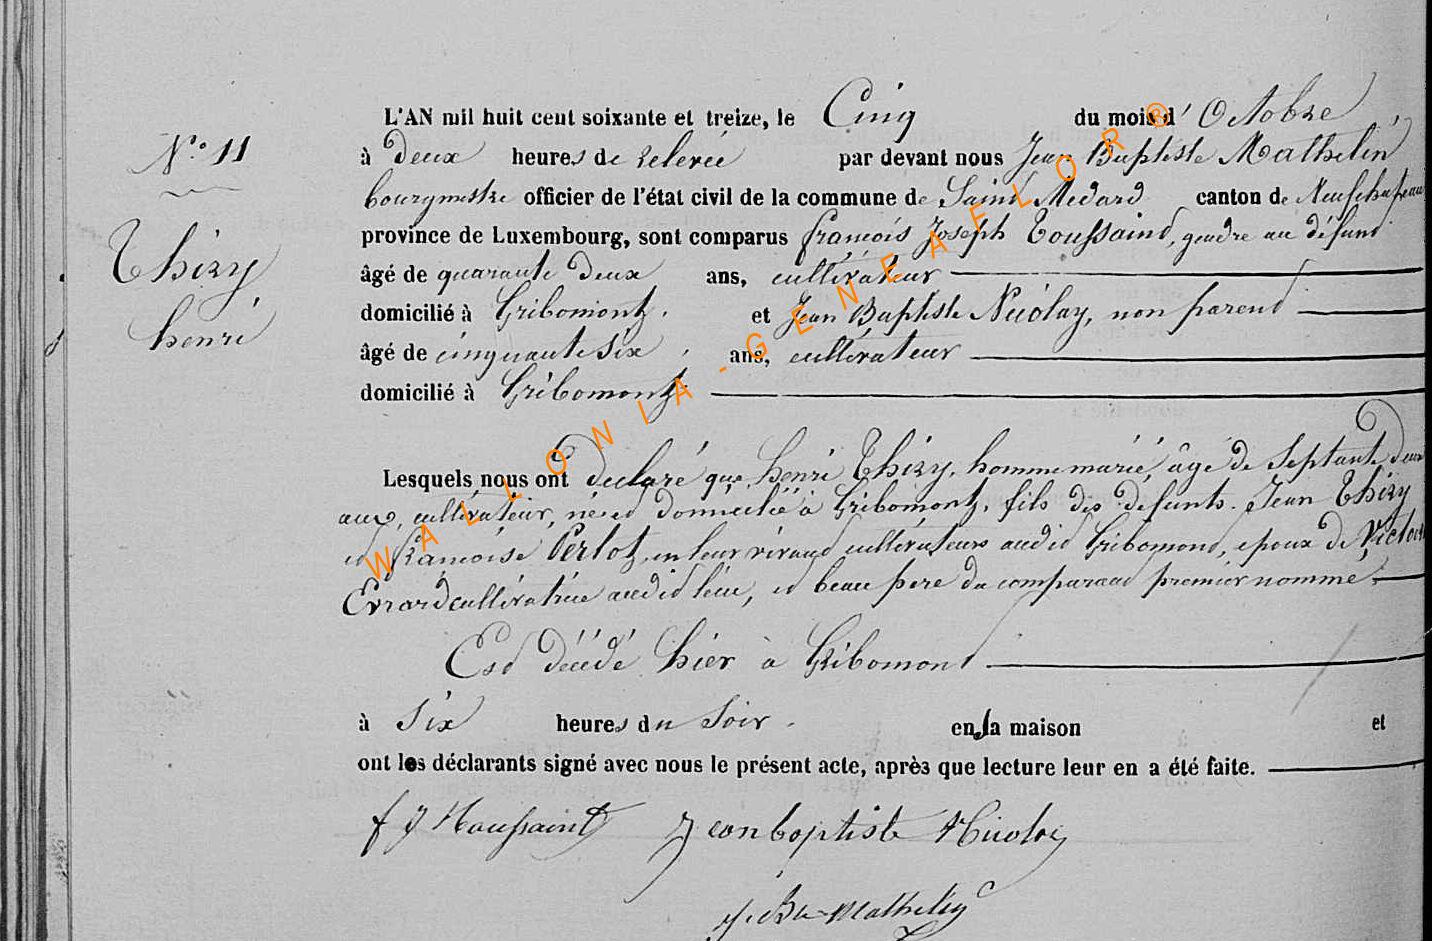 L'AN mil huit cent soixante et treize, le Cinq du mois d' Octobre
N.° 11
à Deux heures de relevée par devant nous Jean Baptiste Mathelin
bourgmestre officier de l'état civil de la commune de Saint Médard canton de Neufchateau
province de Luxembourg, sont comparus françois Joseph Toussaint, gendre au défunt
Thiry
henri
âgé de quarante deux ans, cultivateur
domicilié à Gribomont, et Jean Baptiste Nicolay, non parent
âgé de cinquante six ans, cultivateur
domicilié à Gribomont
Lesquels nous ont declaré que henri Thiry, homme marié, âgé de septante deux
ans, cultivateur, né et domicilié à Gribomont, fils des défunts Jean Thiry
et françoise Perlot, en leur vivant cultivateurs audit Gribomont, epoux de Victoire
Evrard cultivatrice audit lieu, et beau pere du comparant premier nommé
Est décédé hier à Gribomont
à six heures du soir en sa maison et
ont les déclarants signé avec nous le présent acte, après que lecture leur en a été faite.
f J Toussaint Jean baptiste Nicolay
J. Bte Mathelin
WALLONIA-GENEAFLOR®